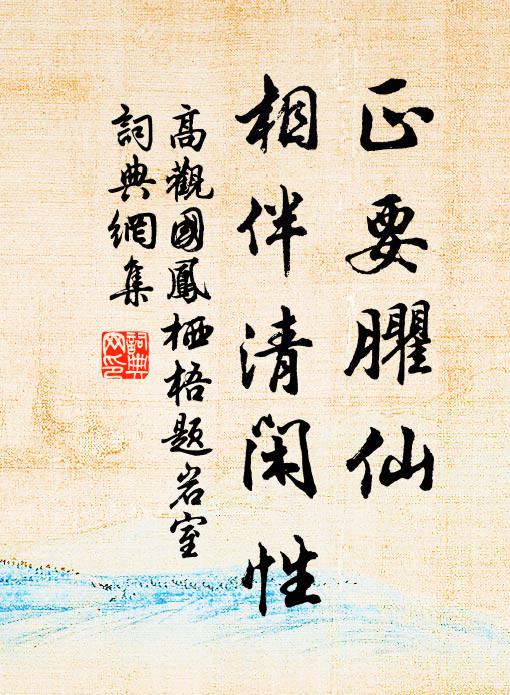 正要臞仙
相伴清閑性
高觀國鳳栖梧題岩室
詞典網集
詞典
網印